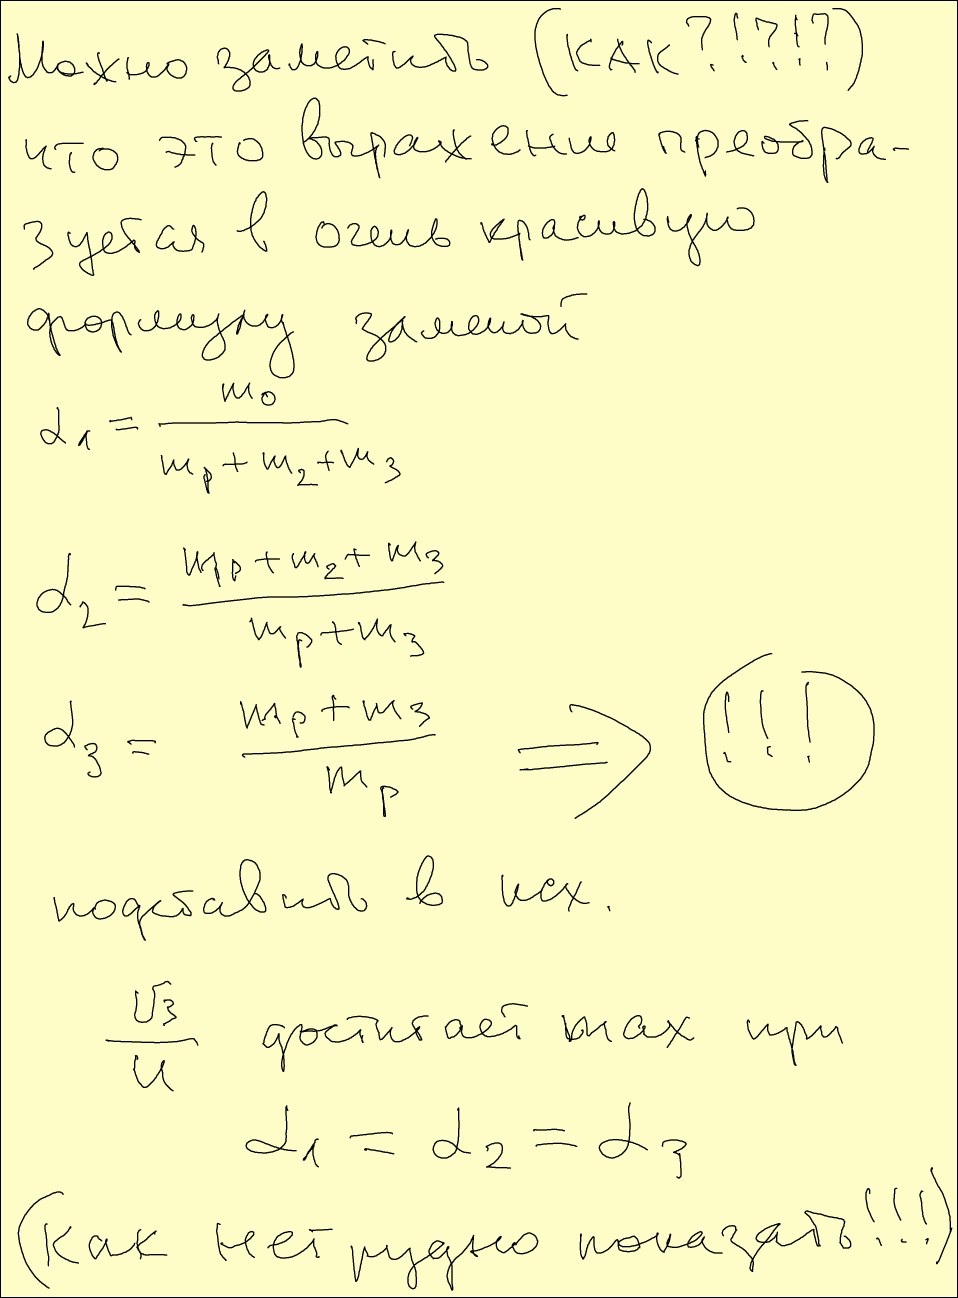 Можно заметить (КАК?!?!?)
что это выражение преобра-
зуется в очень красивую
формулу заменой
α₁ = m₀ / (mₚ + m₂ + m₃)
α₂ = (mₚ + m₂ + m₃) / (mₚ + m₃)
α₃ = (mₚ + m₃) / mₚ ⇒ !!!
подставить в исх.
v₃ / u достигает max при
α₁ = α₂ = α₃
(как нетрудно показать!!!)